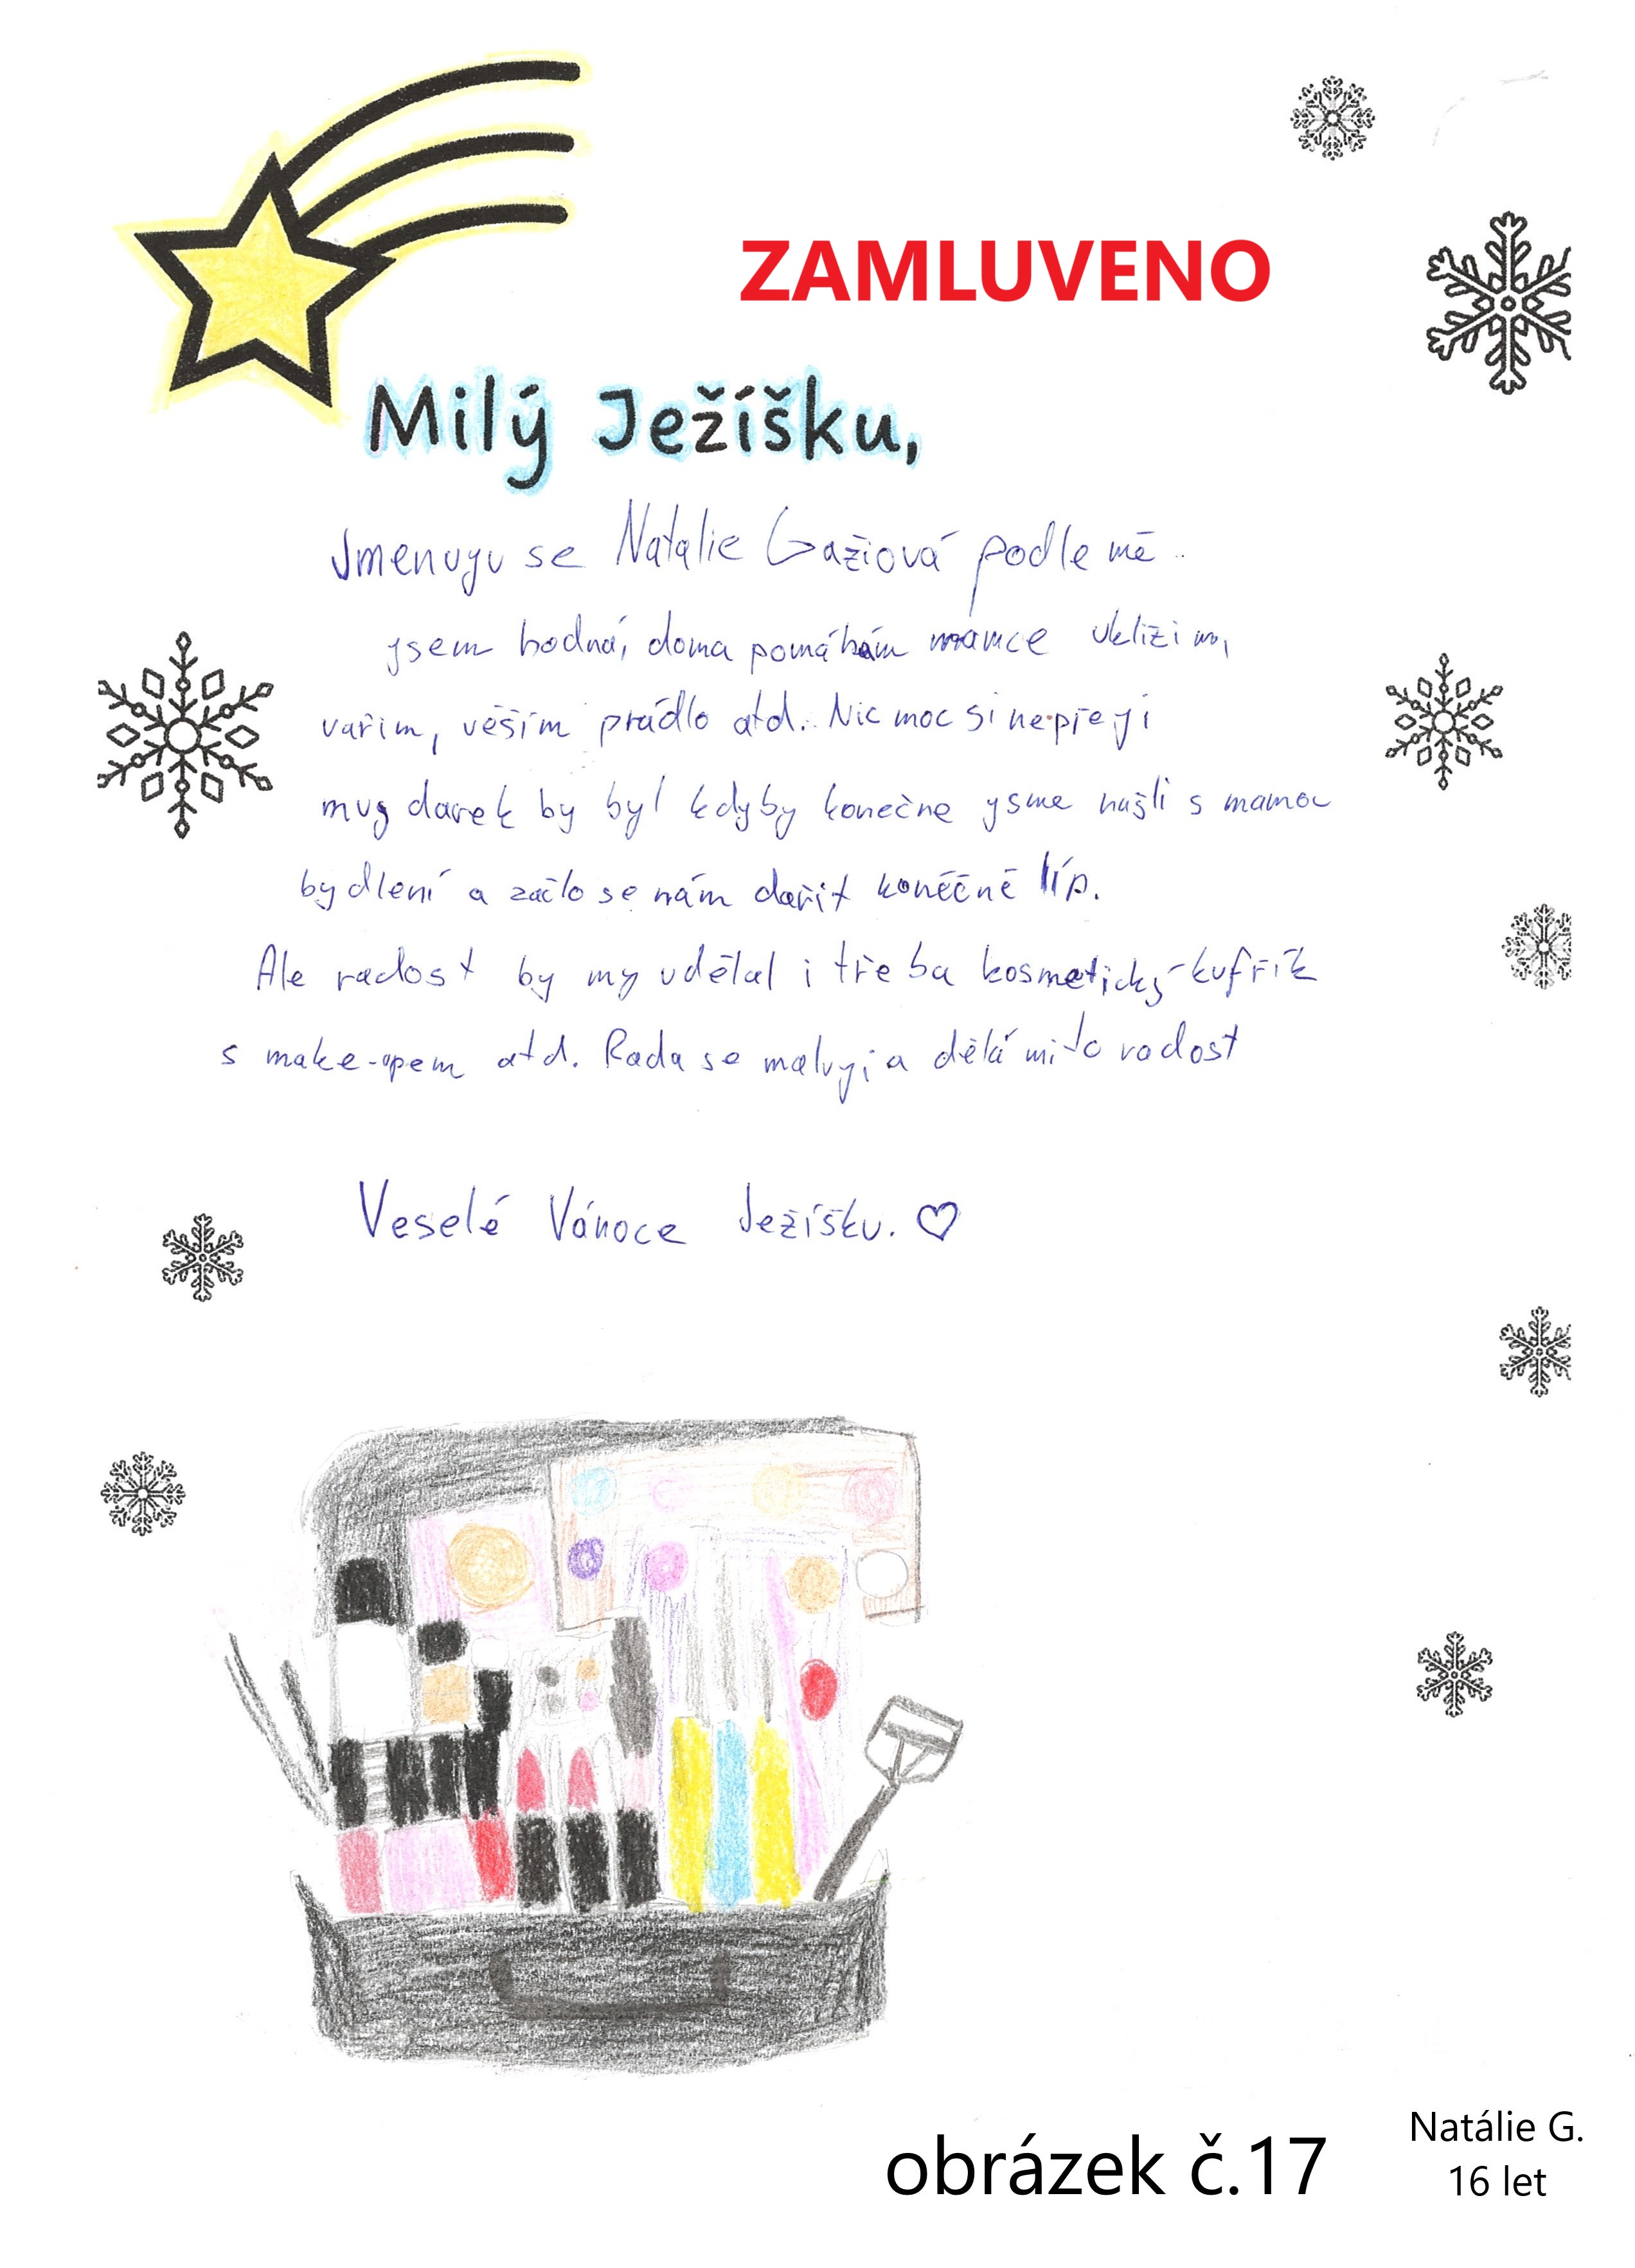 ZAMLUVENO
Milý Ježíšku,
Jmenuju se Natalie Gažiová podle mě
jsem hodná, doma pomáhám mamce uklízím,
vařím, věším prádlo atd. Nic moc si nepřeji
muj darek by byl kdyby konečne jsme našli s mamou
bydlení a začlo se nám dařit konečně líp.
Ale radost by my udělal i třeba kosmetický kufřík
s make-upem atd. Rada se maluji a dělá mi to radost
Veselé Vánoce Ježíšku. ♡
obrázek č.17
Natálie G.
16 let